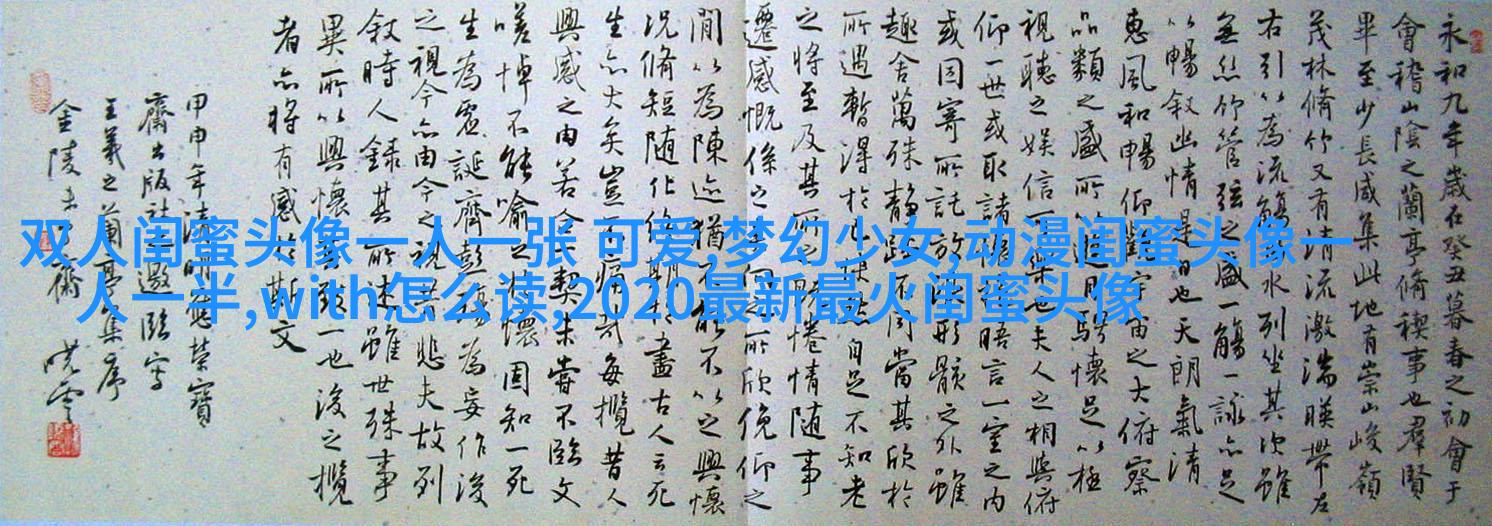 双人闺蜜头像一人一张 可爱,梦幻少女,动漫闺蜜头像一
人一半,with怎么读,2020最新最火闺蜜头像
永和九年歲在癸丑暮春之初會于
會稽山陰之蘭亭脩稧事也羣賢
畢至少長咸集此地有崇山峻嶺
茂林脩竹又有清流激湍暎帶左
右引以為流觴曲水列坐其次雖
無絲竹管弦之盛一觴一詠亦足
以暢敘幽情是日也天朗氣清
惠風和暢仰觀宇宙之大俯察
品類之盛所以遊目騁懷足以極
視聽之娛信可樂也夫人之相與俯
仰一世或取諸懷抱悟言一室之內
或因寄所託放浪形骸之外雖
趣舍萬殊靜躁不同當其欣於
所遇暫得於己快然自足不知老
之將至及其所之既惓情隨事
遷感慨係之矣向之所欣俛仰之
間以為陳迹猶不能不以之興懷
況脩短隨化終期於盡古人云死
生亦大矣豈不痛哉每攬昔人
興感之由若合一契未嘗不臨文
嗟悼不能喻之於懷固知一死
生為虛誕齊彭殤為妄作後
之視今亦由今之視昔悲夫故列
敘時人錄其所述雖世殊事
異所以興懷其致一也後之攬
者亦將有感於斯文
甲申年清明應榮寶
齋出版社之邀臨寫
王羲之蘭亭集序
金陵 齋